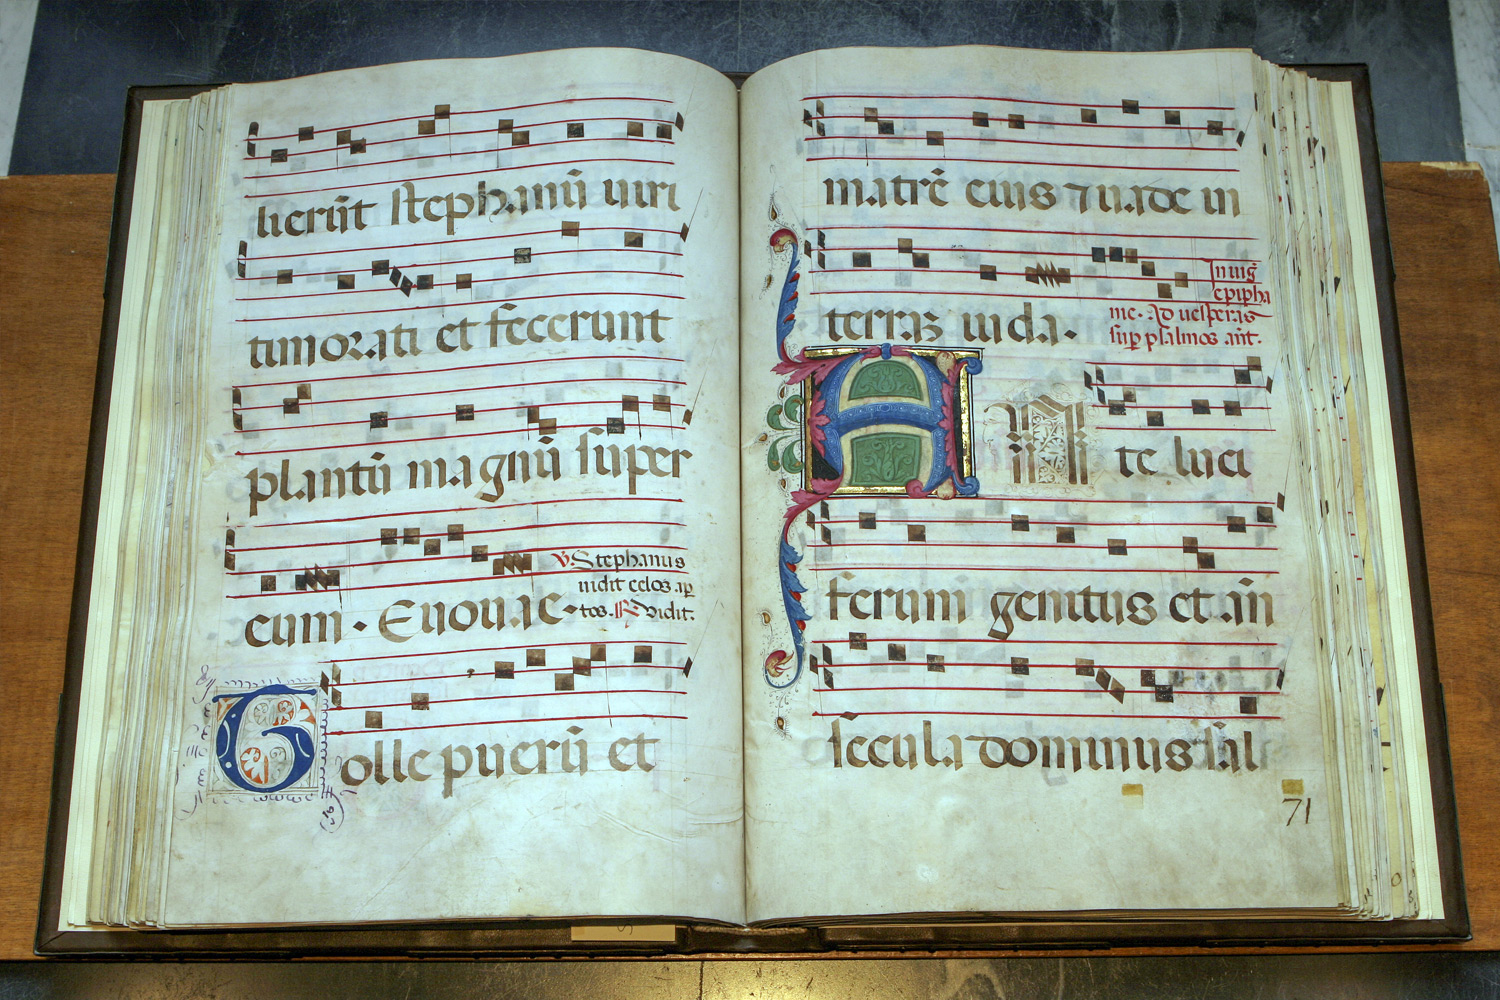 lierūt stephanū uiri
timorati et fecerunt
plantū magnū super
eum · Euouae ·
V. Stephanus
uidit celos ap
tos. R. Vidit.
Tolle puerū et
matrē eius ⁊ uade in
terras iuda ·
In uig̅
epipha
nie. Ad uesperas
sup̱ psalmos añt.
Ante luci
ferum genitus et añ
secula dominus sal
71